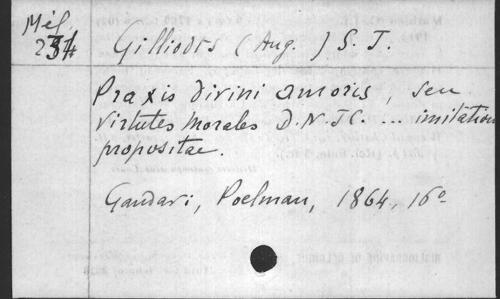 Mél.
234
Gilliodts (Aug.) S. J.
Praxis divini amoris, seu
virtutes morales D.N.J.C. ... imitationi
propositae.
Gandavi, Poelman, 1864, 16°